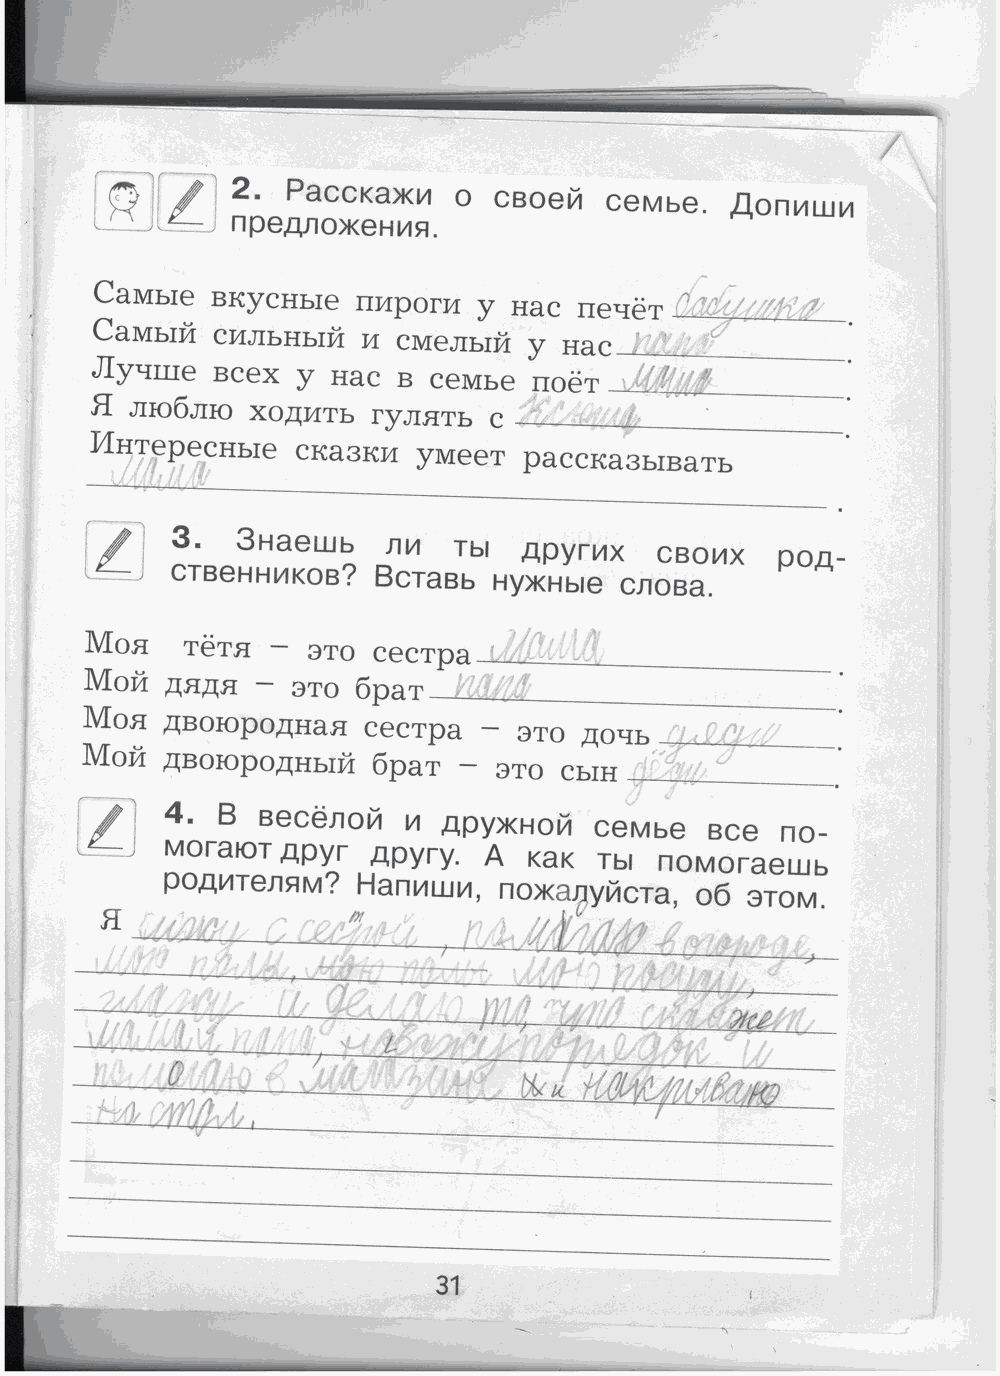 2. Расскажи о своей семье. Допиши
предложения.
Самые вкусные пироги у нас печёт бабушка.
Самый сильный и смелый у нас папа.
Лучше всех у нас в семье поёт мама.
Я люблю ходить гулять с Ксюша.
Интересные сказки умеет рассказывать
мама.
3. Знаешь ли ты других своих род-
ственников? Вставь нужные слова.
Моя тётя – это сестра мама.
Мой дядя – это брат папа.
Моя двоюродная сестра – это дочь дяди.
Мой двоюродный брат – это сын
4. В весёлой и дружной семье все по-
могают друг другу. А как ты помогаешь
родителям? Напиши, пожалуйста, об этом.
Я сижу с сестрой, помогаю в огороде,
мою полы, мою полы мою посуду,
глажу и делаю то, что скажет
мама и папа, навожу порядок и
помогаю в магазине и накрываю
на стол.
31